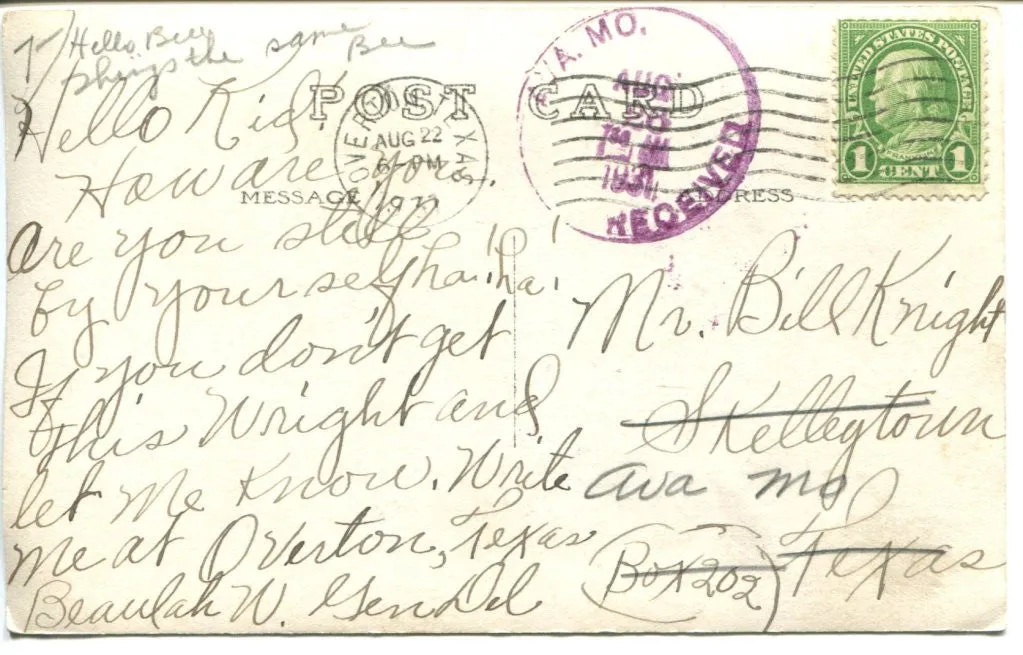 Hello Bill
things the same
Bee
Hello Kid!
How are you.
are you still
by yourself ha! ha!
If you don't get
this Wright and
let me know. Write
me at Overton, Texas
Beaulah W. Gen Del
POST CARD
MESSAGE
ADDRESS
OVERTON TEXAS
AUG 22
6 PM
AVA. MO.
AUG
1931
RECEIVED
UNITED STATES POSTAGE
FRANKLIN
1 CENT 1
Mr. Bill Knight
Skelleytown
Ava Mo
Texas
(Box 202)